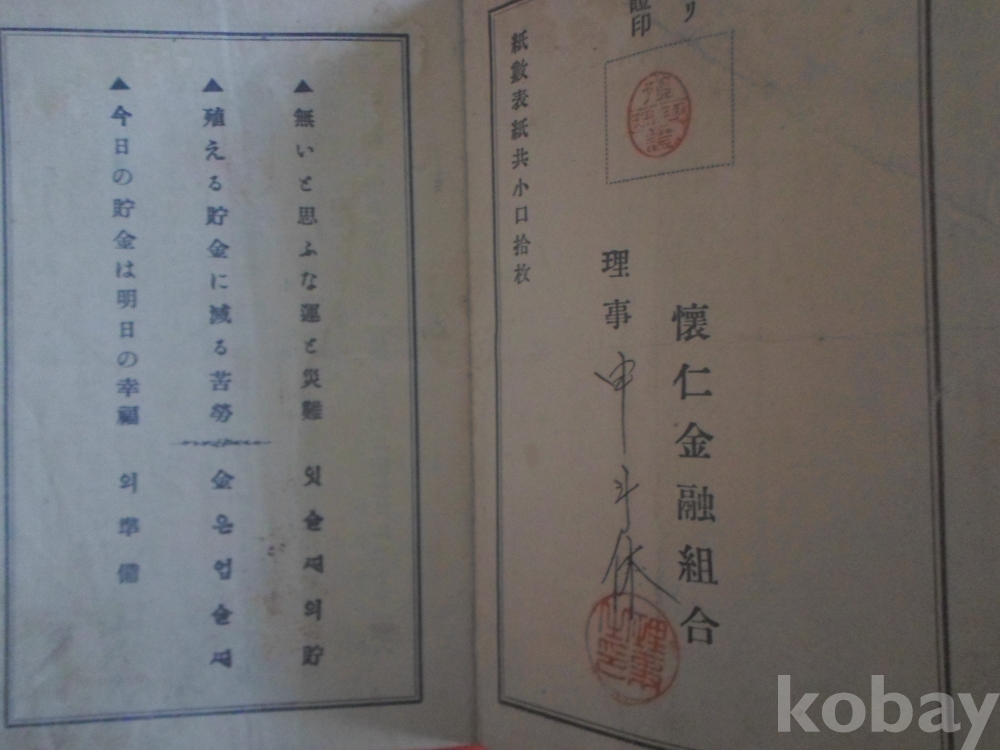 リ
證印
懷仁金融組合
理事 申斗休
理事之印
紙數表紙共小口拾枚
▲無いと思ふな運と災難
▲殖える貯金に減る苦勞
▲今日の貯金は明日の幸福
잇슬ᄯᅢ의貯
金은업슬ᄯᅢ
의準備
kobay